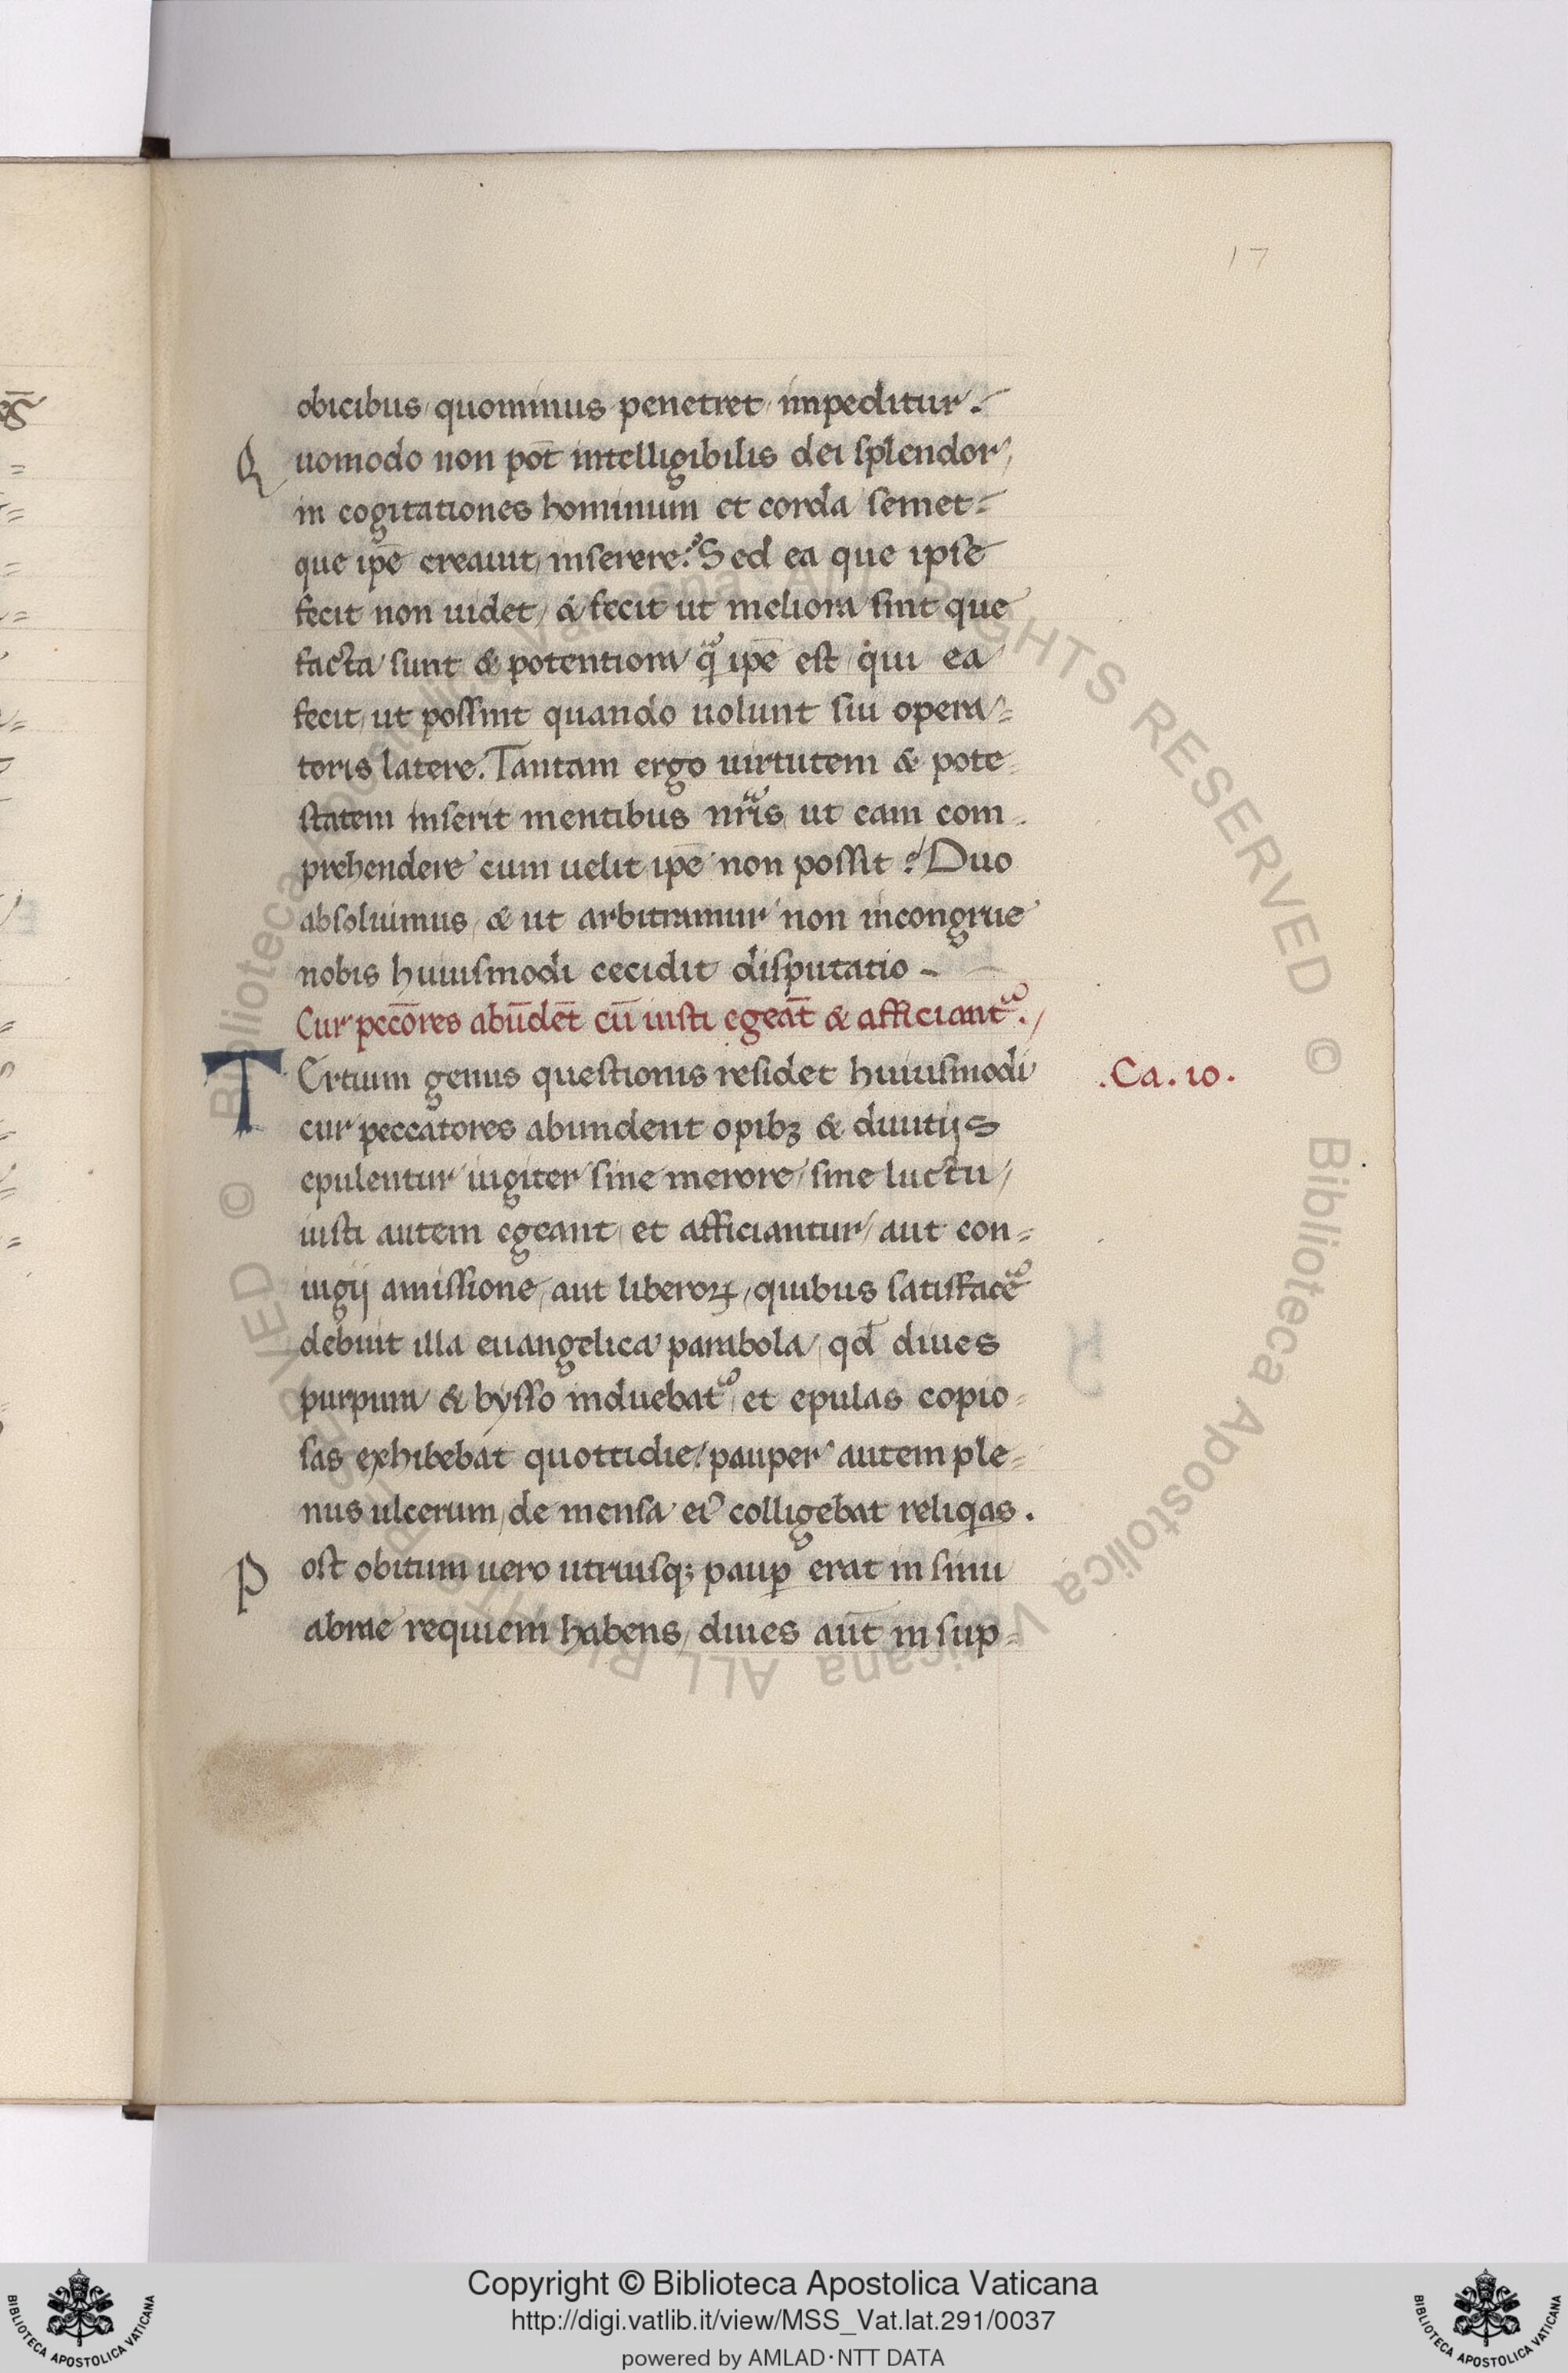 17
obicibus quominus penetret impeditur.
Quomodo non pot̄ intelligibilis dei splendor,
in cogitationes hominum et corda semet-
que ip̄e creauit, inserere? Sed ea que ipse
fecit non uidet, & fecit ut meliora sint que
facta sunt & potentiora q̃ ip̄e est qui ea
fecit, ut possint quando uolunt sui opera=
toris latere. Tantam ergo uirtutem & pote-
statem inserit mentibus nr̃is, ut eam com-
prehendere cum uelit ip̄e non possit? Duo
absoluimus, & ut arbitramur non incongrue
nobis huiusmodi cecidit disputatio -
Cur pecc̄ores abūdēt cū iusti egeāt & afficiantᷣ./
TErtium genus questionis residet huiusmodi
.Ca.10.
cur peccatores abundent opibꝫ & diuitijs
epulentur iugiter sine merore, sine luctu,
iusti autem egeant, et afficiantur, aut con=
iugij amissione, aut liberoꝝ, quibus satisfacẽ
debuit illa euangelica parabola, qd̄ diues
purpura & bysso induebatᷣ, et epulas copio-
sas exhibebat quottidie, pauper autem ple=
nus ulcerum, de mensa eiꝰ colligebat reliqias.
Post obitum uero utriusqꝫ paup̱ erat in sinu
abrae requiem habens, diues aut̄ in sup=
Copyright © Biblioteca Apostolica Vaticana
http://digi.vatlib.it/view/MSS_Vat.lat.291/0037
powered by AMLAD·NTT DATA
BIBLIOTECA APOSTOLICA VATICANA
BIBLIOTECA APOSTOLICA VATICANA